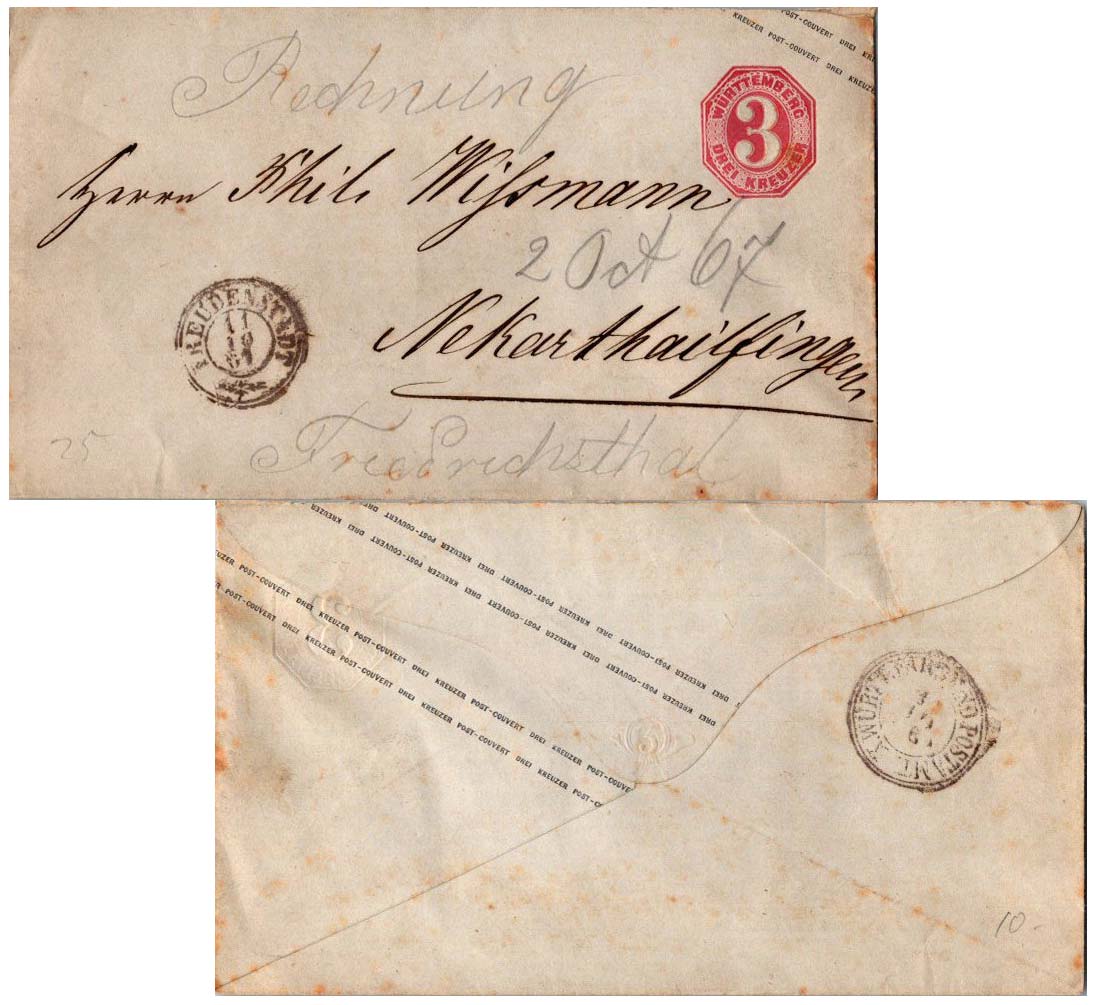 POST-COUVERT DREI KRE
KREUZER POST-COUVERT DREI KREUZER
Rechnung
WÜRTTEMBERG
3
DREI KREUZER
Herrn Phil. Wißmann
2 Oct 67
FREUDENSTADT
11
10
67
Nekarthailfingen
25
Friedrichsthal
DREI KREUZER POST-COUVERT DREI KREUZER POST-COUVERT DREI KREUZER POST-COUVERT DREI
KREUZER POST-COUVERT DREI KREUZER POST-COUVERT DREI KREUZER POST-COUVERT DREI
UZER POST-COUVERT DREI KREUZER POST-COUVERT DREI KREUZER POST-COUVERT DREI KREUZER POST-COUVE
POST-COUVERT DREI KREUZER POST-COUVERT DREI KREUZER POST-COUVERT DREI KREUZER POST-C
3
K.WÜRTT.FAHREND POSTAMT
10.-